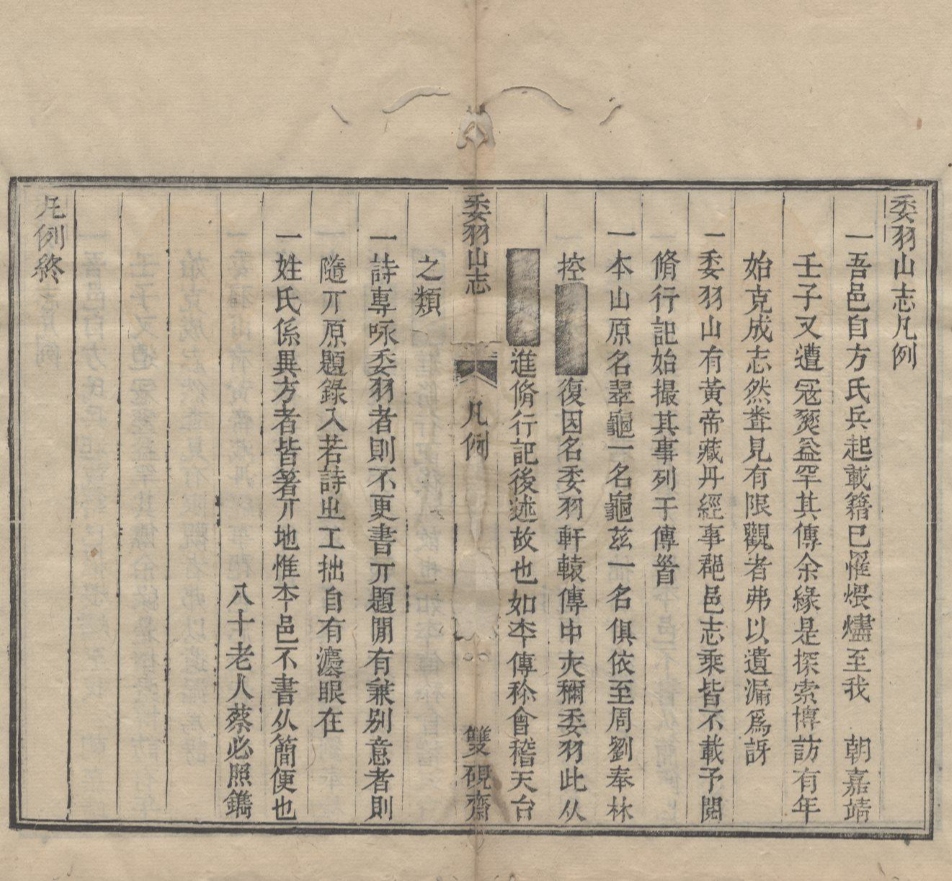 委羽山志凡例
一吾邑自方氏兵起載籍已罹煨燼至我 朝嘉靖
壬子又遭冦燹益罕其傳余緣是探索博訪有年
始克成志然聋見有限觀者弗以遺漏爲訝
一委羽山有黃帝藏丹經事郡邑志乘皆不載予閱
脩行記始撮其事列于傳首
一本山原名翠龜一名龜茲一名俱依至周劉奉林
控 復因名委羽軒轅傳中夾穪委羽此从
進脩行記後述故也如夲傳称會稽天台
之類
一詩專咏委羽者則不更書丌題閒有兼别意者則
隨丌原題錄入若詩㞢工拙自有灋眼在
一姓氏係異方者皆箸丌地惟夲邑不書仏簡便也
八十老人蔡必照鐫
凡例終
委羽山志
凡例
雙硯齋